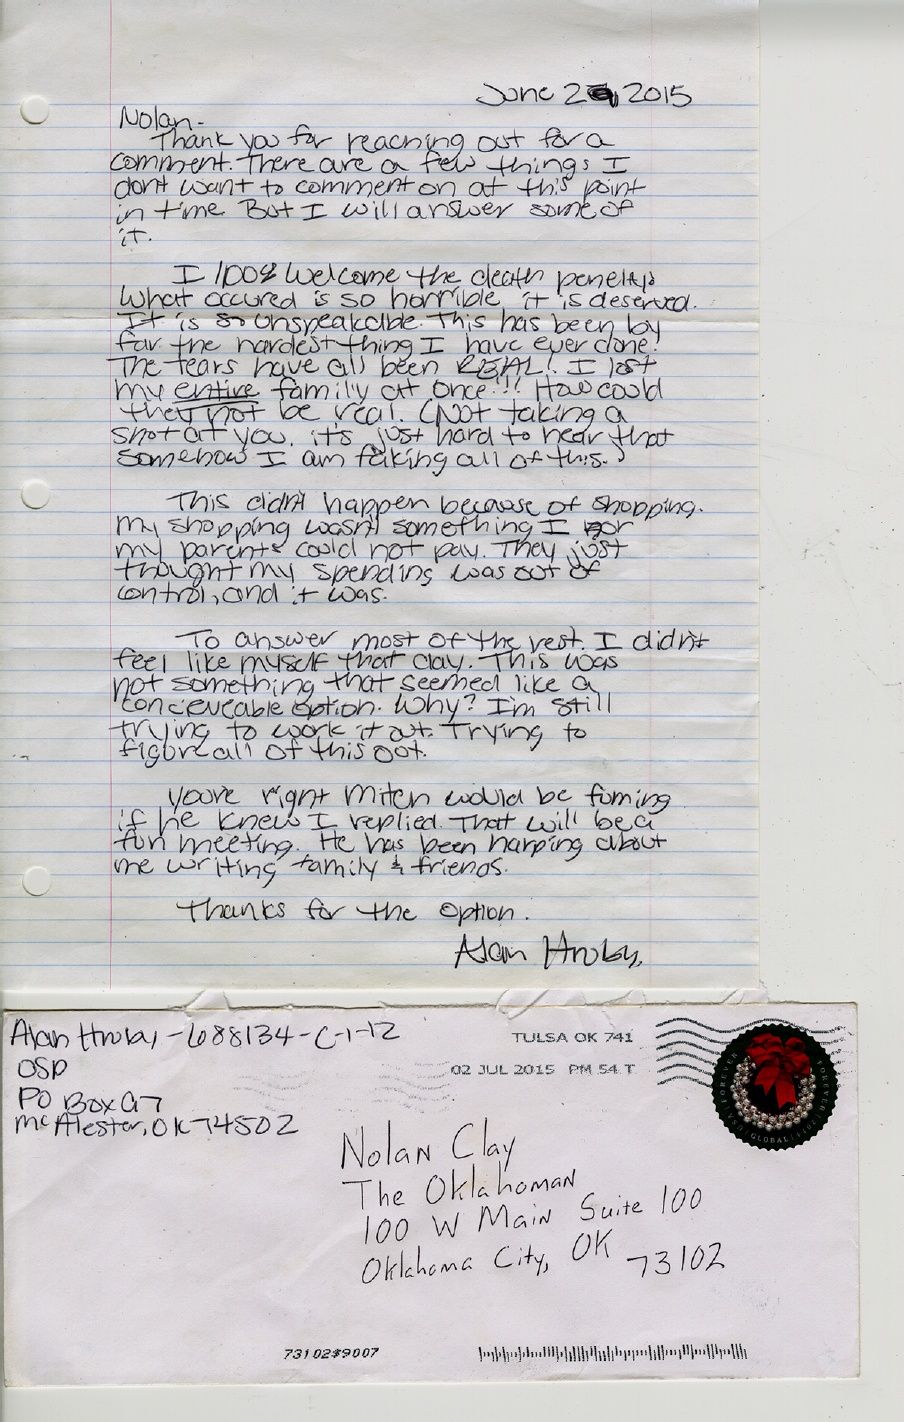 June 29, 2015
Nolan-
Thank you for reaching out for a
comment. There are a few things I
dont want to comment on at this point
in time But I will answer some of
it.
I 100% welcome the death penelty.
What occured is so horrible, it is deserved.
It is so unspeakable. This has been by
far the hardest thing I have ever done!
The tears have all been REAL! I lost
my entire family at once!!! How could
they not be real. (Not taking a
shot at you, it's just hard to hear that
somehow I am faking all of this.)
This didn't happen because of shopping.
my shopping wasn't something I or
my parents could not pay. They just
thought my spending was out of
control, and it was.
To answer most of the rest. I didn't
feel like myself that day. This was
not something that seemed like a
conceveable option. Why? I'm still
trying to work it out. Trying to
figure all of this out.
You're right Mitch would be fuming
if he knew I replied. That will be a
fun meeting. He has been harping about
me writing family & friends.
Thanks for the option.
Alan Hruby.
Alan Hruby-688134-C-1-12
OSP
PO Box 97
McAlester, OK 74502
TULSA OK 741
02 JUL 2015 PM 54 T
FOREVER
GLOBAL
Nolan Clay
The Oklahoman
100 W Main Suite 100
Oklahoma City, OK 73102
73102$9007